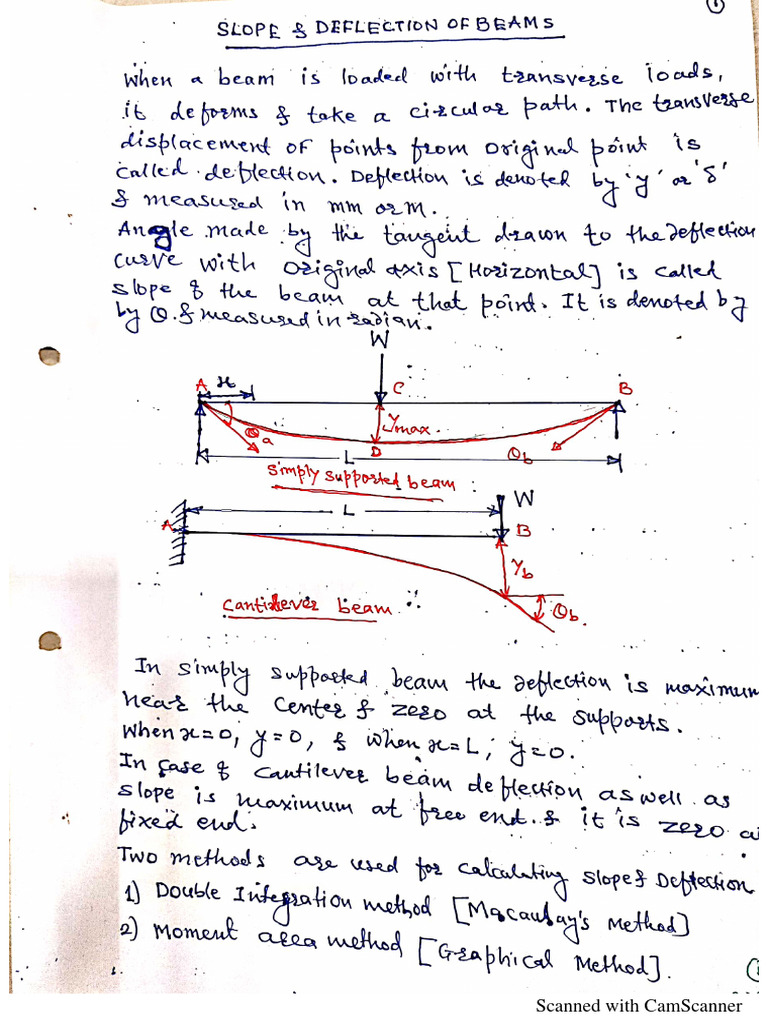 1
SLOPE & DEFLECTION OF BEAMS
When a beam is loaded with transverse loads,
it deforms & take a circular path. The transverse
displacement of points from original point is
called deflection. Deflection is denoted by 'y' or 'δ'
& measured in mm or M.
Angle made by the tangent drawn to the deflection
curve with original axis [Horizontal] is called
slope of the beam at that point. It is denoted by
by θ. & measured in radian.
W
A x C B
θa Ymax
D θb
L
Simply supported beam :
W
L
A B
Yb
Cantilever beam :
θb.
In simply supported beam the deflection is maximum
near the center & zero at the supports.
When x=0, y=0, & when x=L, y=0.
In case of cantilever beam deflection as well as
slope is maximum at free end. & it is zero a
fixed end.
Two methods are used for calculating slope & Deflection
1) Double Integration method [Macaulay's Method]
2) Moment area method [Graphical Method].
Scanned with CamScanner